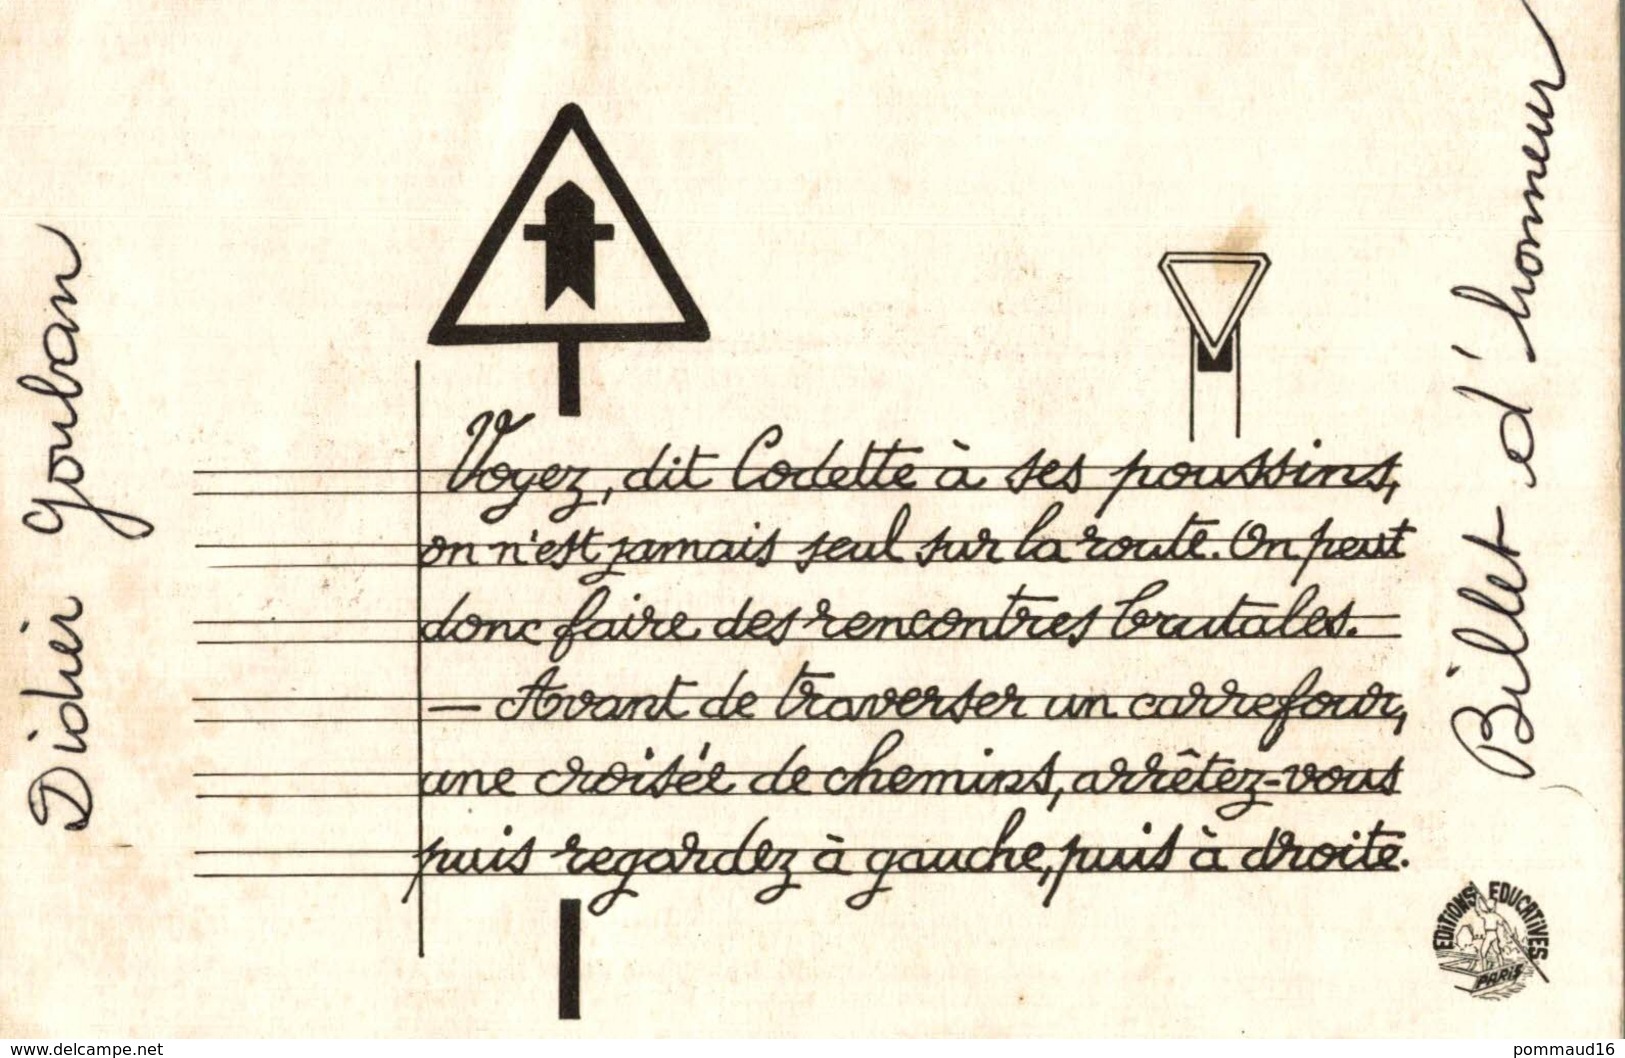 Didier Gouban
Voyez, dit Codette à ses poussins,
on n'est jamais seul sur la route. On peut
donc faire des rencontres brutales.
— Avant de traverser un carrefour,
une croisée de chemins, arrêtez-vous
puis regardez à gauche, puis à droite.
Billet d'honneur
EDITIONS EDUCATIVES
PARIS
www.delcampe.net
pommaud16